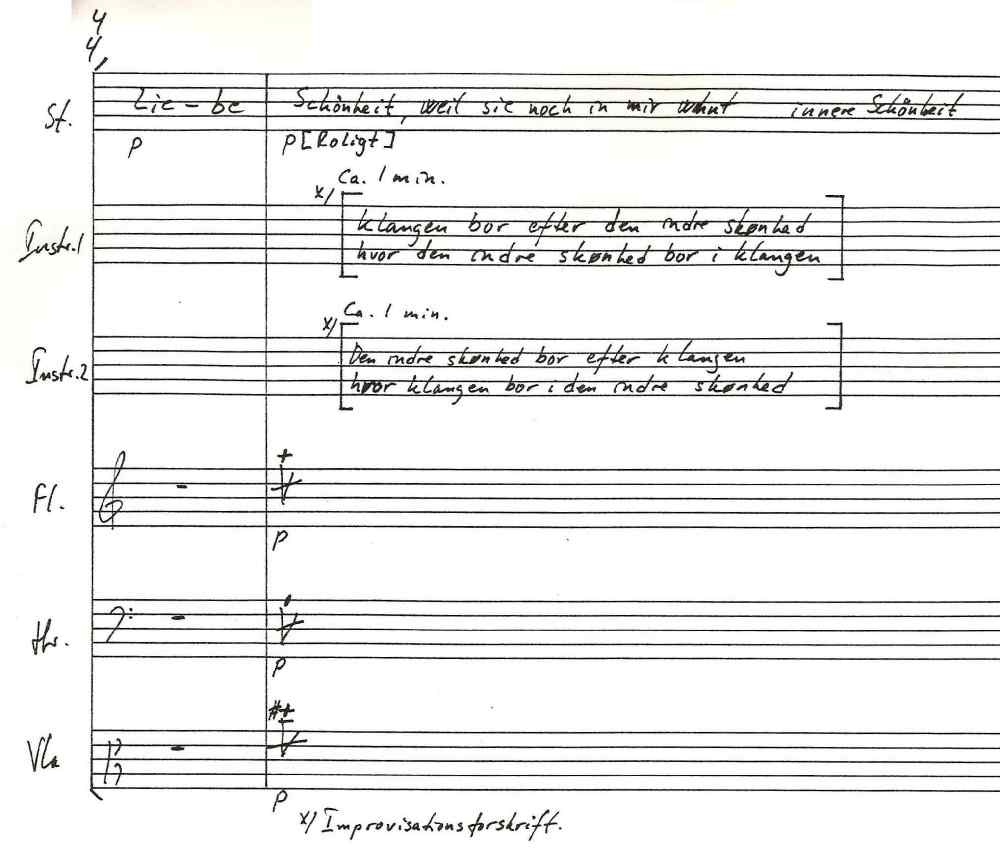 4
4
St. Lie - be Schönheit, weil sie noch in mir wohnt innere Schönheit
p p [Roligt]
Ca. 1 min.
x/
Instr.1 klangen bor efter den indre skønhed
hvor den indre skønhed bor i klangen
Ca. 1 min.
x/
Instr.2 Den indre skønhed bor efter klangen
hvor klangen bor i den indre skønhed
Fl.
p
Hr.
p
Vla
p
x/ Improvisationsforskrift.